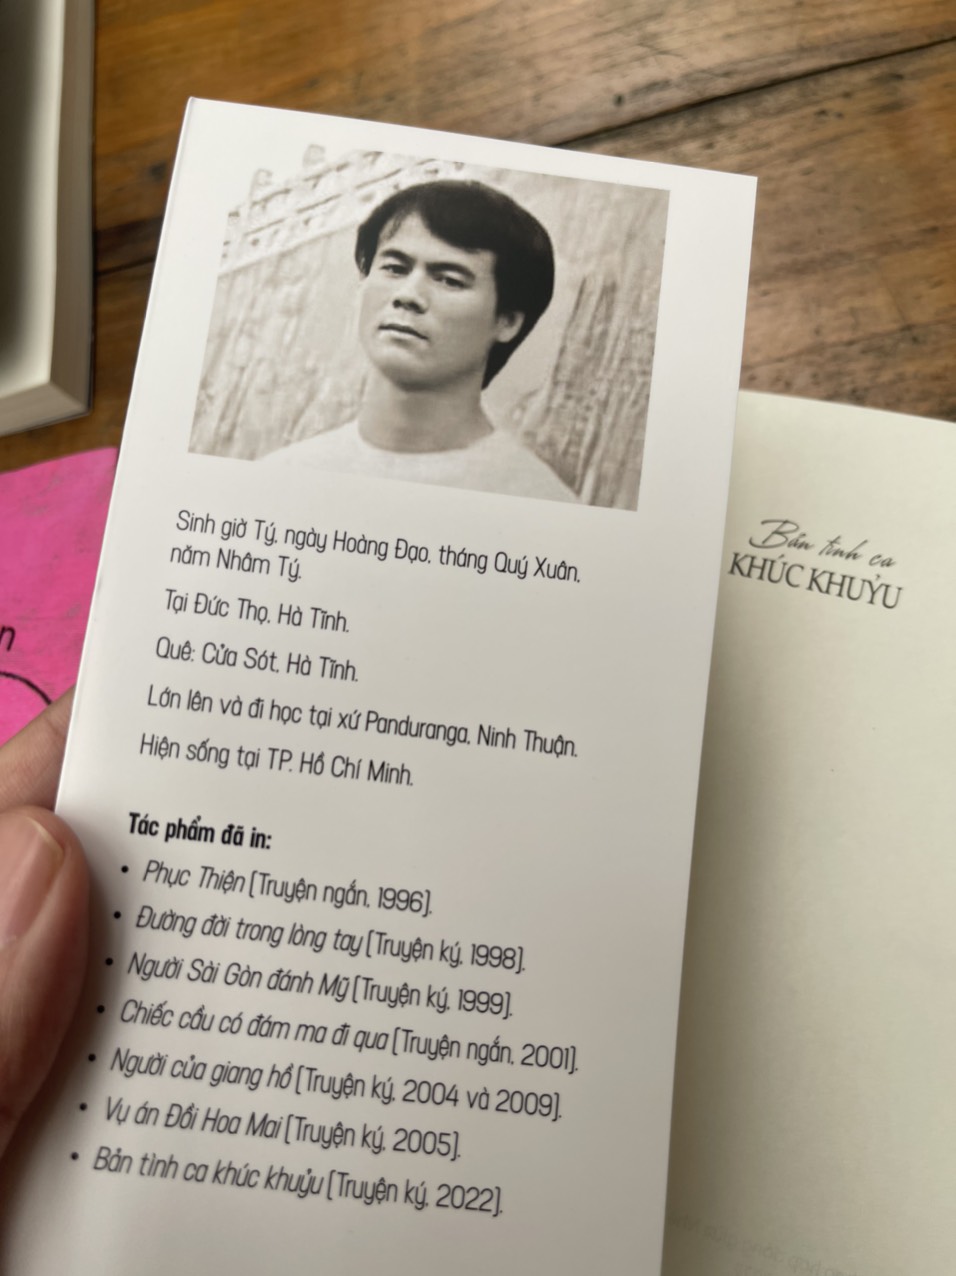 Sinh giờ Tý, ngày Hoàng Đạo, tháng Quý Xuân,
năm Nhâm Tý.
Tại Đức Thọ, Hà Tĩnh.
Quê: Cửa Sót, Hà Tĩnh.
Lớn lên và đi học tại xứ Panduranga, Ninh Thuận.
Hiện sống tại TP. Hồ Chí Minh.
Tác phẩm đã in:
• Phục Thiện (Truyện ngắn, 1996).
• Đường đời trong lòng tay (Truyện ký, 1998).
• Người Sài Gòn đánh Mỹ (Truyện ký, 1999).
• Chiếc cầu có đám ma đi qua (Truyện ngắn, 2001).
• Người của giang hồ (Truyện ký, 2004 và 2009).
• Vụ án Đồi Hoa Mai (Truyện ký, 2005).
• Bản tình ca khúc khuỷu (Truyện ký, 2022).
Bản tình ca
KHÚC KHUỶU
n